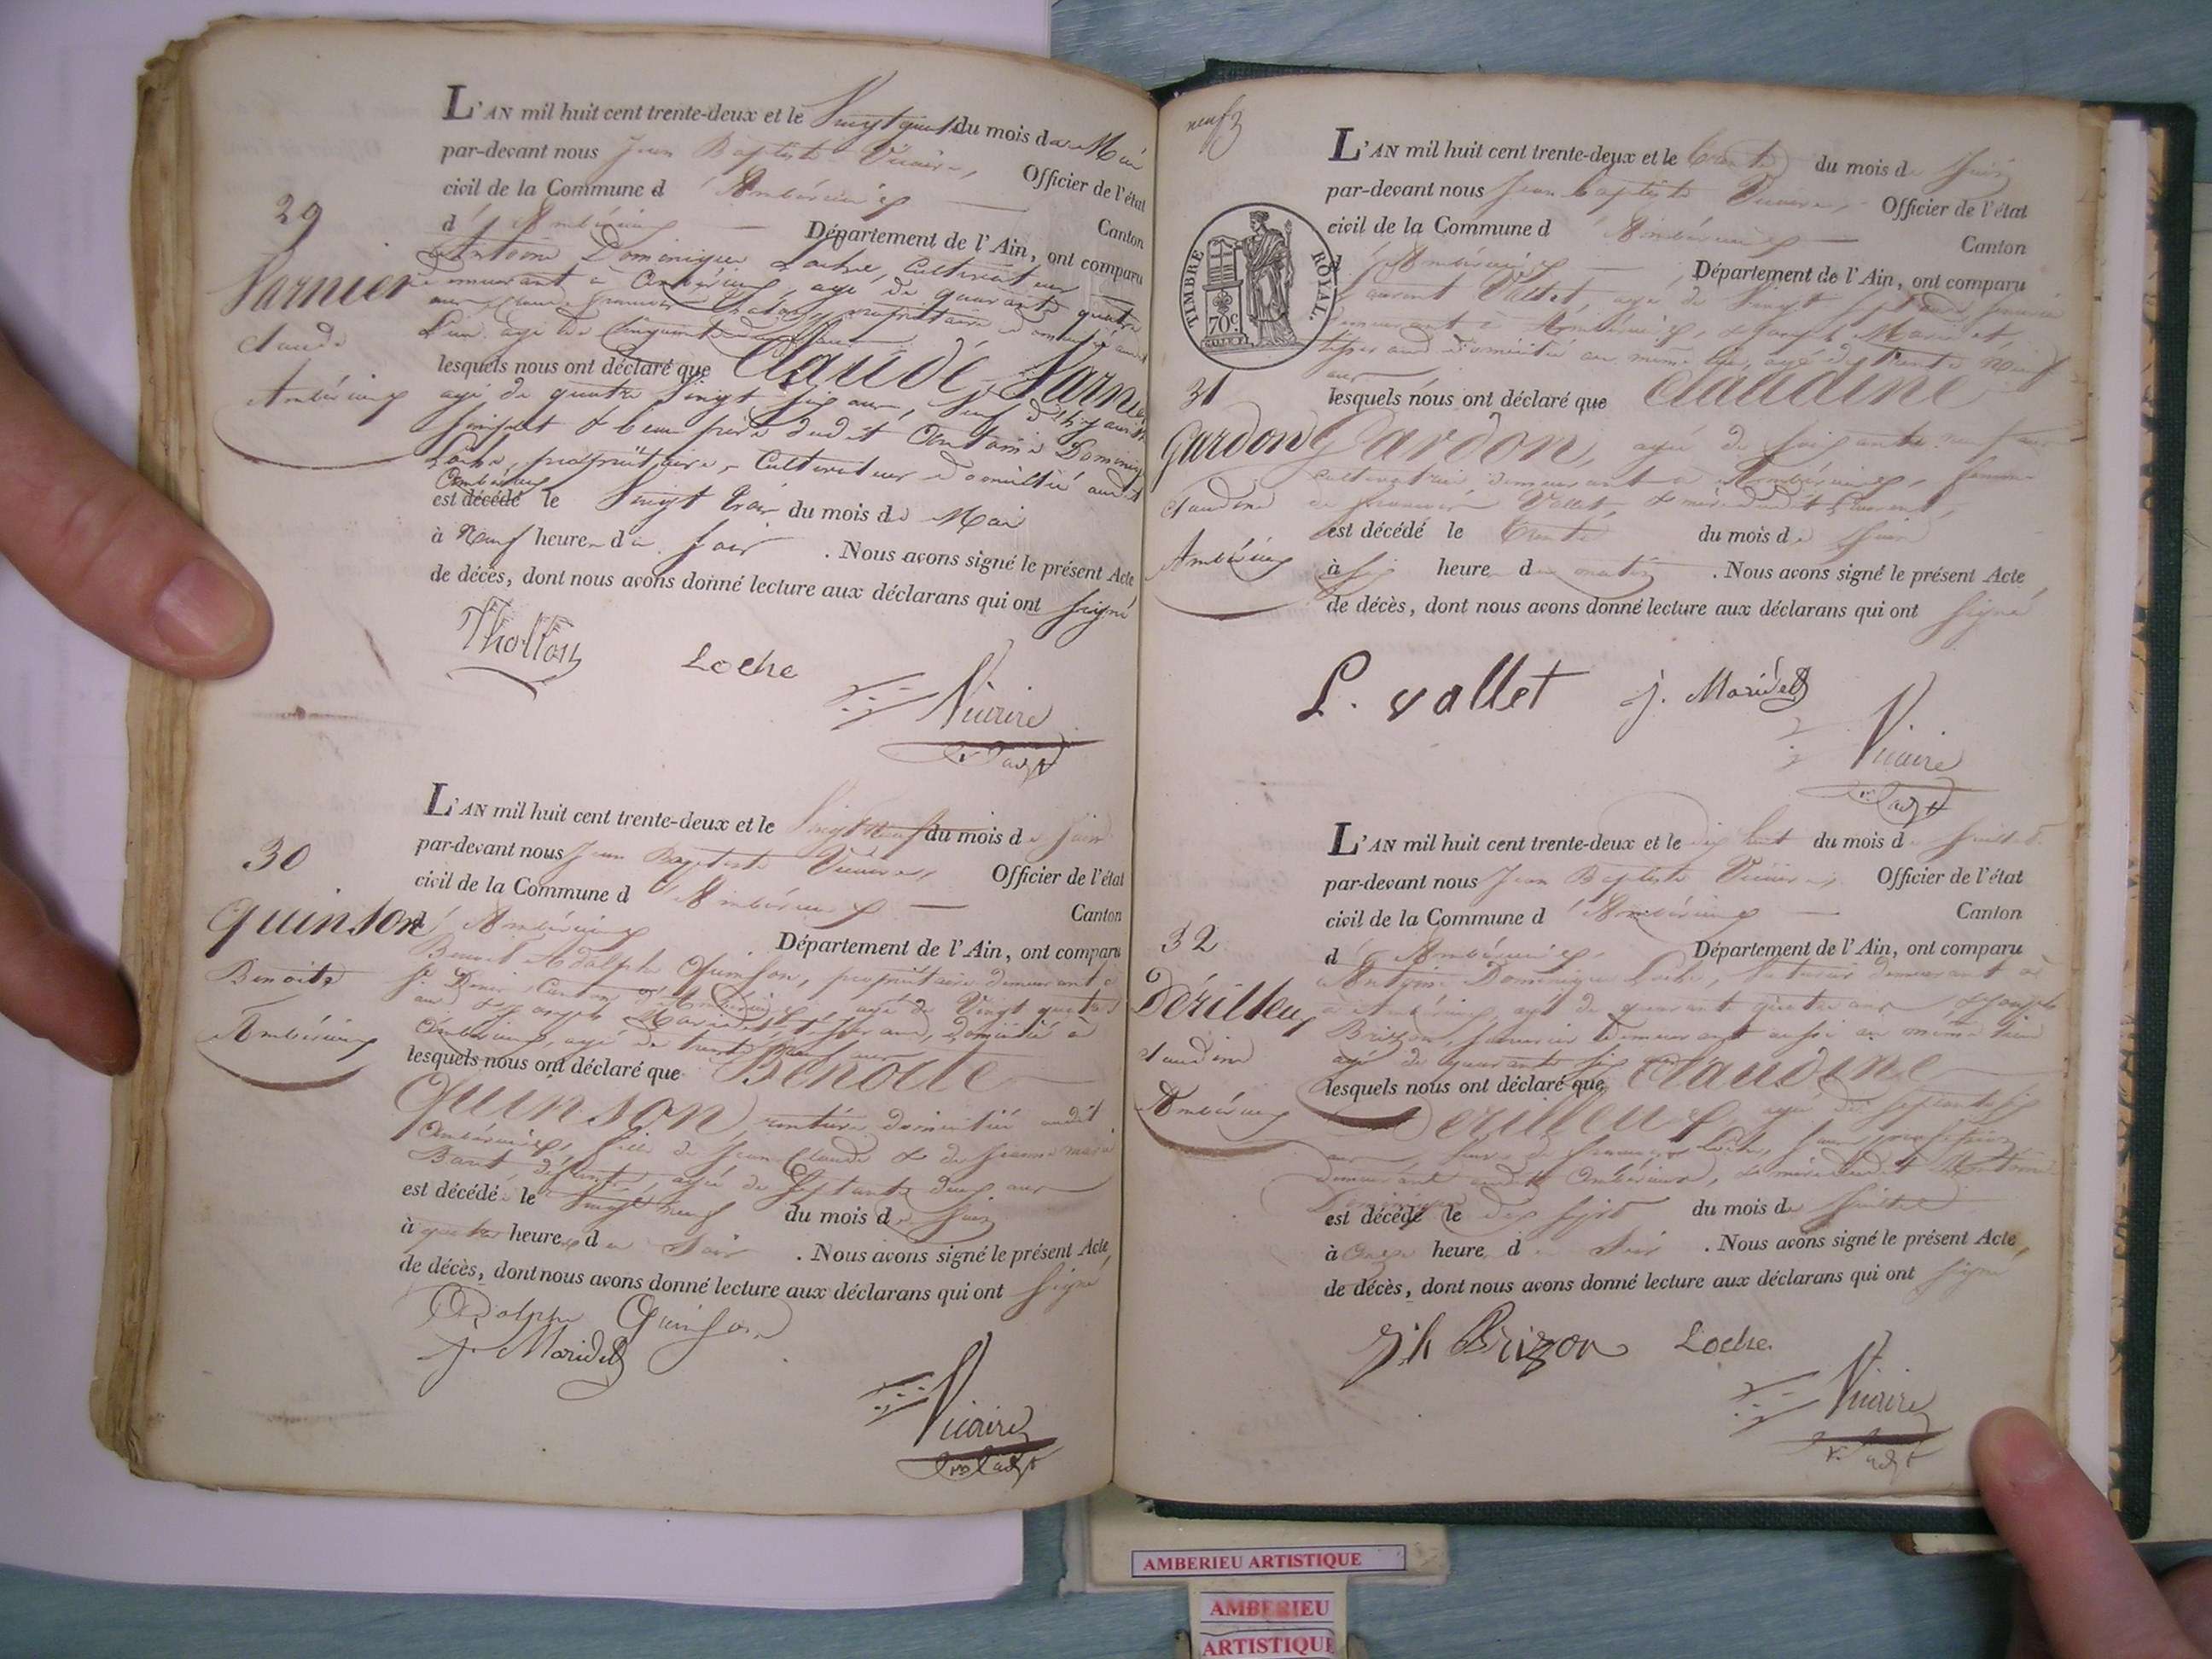 29
Varnier
Claude
Ambérieux
L'AN mil huit cent trente-deux et le Vingt quatre du mois de Mai
par-devant nous Jean Baptiste Vicaire, Officier de l'état
civil de la Commune d'Ambérieux Canton
d'Ambérieux Département de l'Ain, ont comparu
Antoine Dominique Loche, Cultivateur
demeurant à Ambérieux, agé de quarante quatre
ans, Claude François propriétaire
agé de Cinquante
lesquels nous ont déclaré que Claude Varnier
agé de quatre Vingt six ans, Veuf
& beau père dudit Antoine Dominique
Loche, propriétaire, Cultivateur domicilié audit
Ambérieux
est décédé le Vingt trois du mois de Mai
à Neuf heures du Soir. Nous avons signé le présent Acte
de décès, dont nous avons donné lecture aux déclarans qui ont Signé
Thollon Loche
Vicaire
30
Quinson
Benoite
Ambérieux
L'AN mil huit cent trente-deux et le Vingt neuf du mois de Juin
par-devant nous Jean Baptiste Vicaire, Officier de l'état
civil de la Commune d'Ambérieux Canton
d'Ambérieux Département de l'Ain, ont comparu
Benoit Adolphe Quinson, propriétaire demeurant à
St Denis, Canton d'Ambérieux, agé de Vingt quatre
ans & Joseph Maridet, tisserand, domicilié à
Ambérieux, agé de trente neuf ans
lesquels nous ont déclaré que Benoite
Quinson, rentière domiciliée audit
Ambérieux, fille de Jean Claude & de Jeanne marie
défunts, agée de Septante deux ans
est décédée le Vingt neuf du mois de Juin
à quatre heures du Soir. Nous avons signé le présent Acte
de décès, dont nous avons donné lecture aux déclarans qui ont Signé
Adolphe Quinson
J. Maridet
Vicaire
neuf
TIMBRE ROYAL.
70c
31
Gardon
Claudine
Ambérieux
L'AN mil huit cent trente-deux et le trente du mois de Juin
par-devant nous Jean baptiste Vicaire, Officier de l'état
civil de la Commune d'Ambérieux Canton
d'Ambérieux Département de l'Ain, ont comparu
Laurent Vallet, agé de Vingt Sept ans,
demeurant à Ambérieux, & Joseph Maridet,
tisserand domicilié au même lieu, agé de trente neuf
ans
lesquels nous ont déclaré que Claudine
Gardon, agée de soixante neuf ans
cultivatrice, demeurant à Ambérieux, femme
de François Vallet, & mère dudit Laurent,
est décédé le trente du mois de Juin
à six heures du matin. Nous avons signé le présent Acte
de décès, dont nous avons donné lecture aux déclarans qui ont Signé
L. vallet J. Maridet
Vicaire
32
Dérilleux
Claudine
Ambérieux
L'AN mil huit cent trente-deux et le dix huit du mois de Juillet
par-devant nous Jean Baptiste Vicaire, Officier de l'état
civil de la Commune d'Ambérieux Canton
d'Ambérieux. Département de l'Ain, ont comparu
Antoine Dominique Loche, demeurant à
à Ambérieux, agé de quarante quatre ans, & Joseph
Brizon, demeurant aussi au même lieu
agé de quarante six ans
lesquels nous ont déclaré que Claudine
Derilleux, agée de septante six
ans, veuve de François Loche, sans profession
demeurant audit Ambérieux, & mère dudit Antoine
Dominique
est décédé le dix sept du mois de Juillet
à onze heures du Soir. Nous avons signé le présent Acte,
de décès, dont nous avons donné lecture aux déclarans qui ont Signé
Jh Brizon Loche.
Vicaire
AMBERIEU ARTISTIQUE
AMBERIEU
ARTISTIQUE